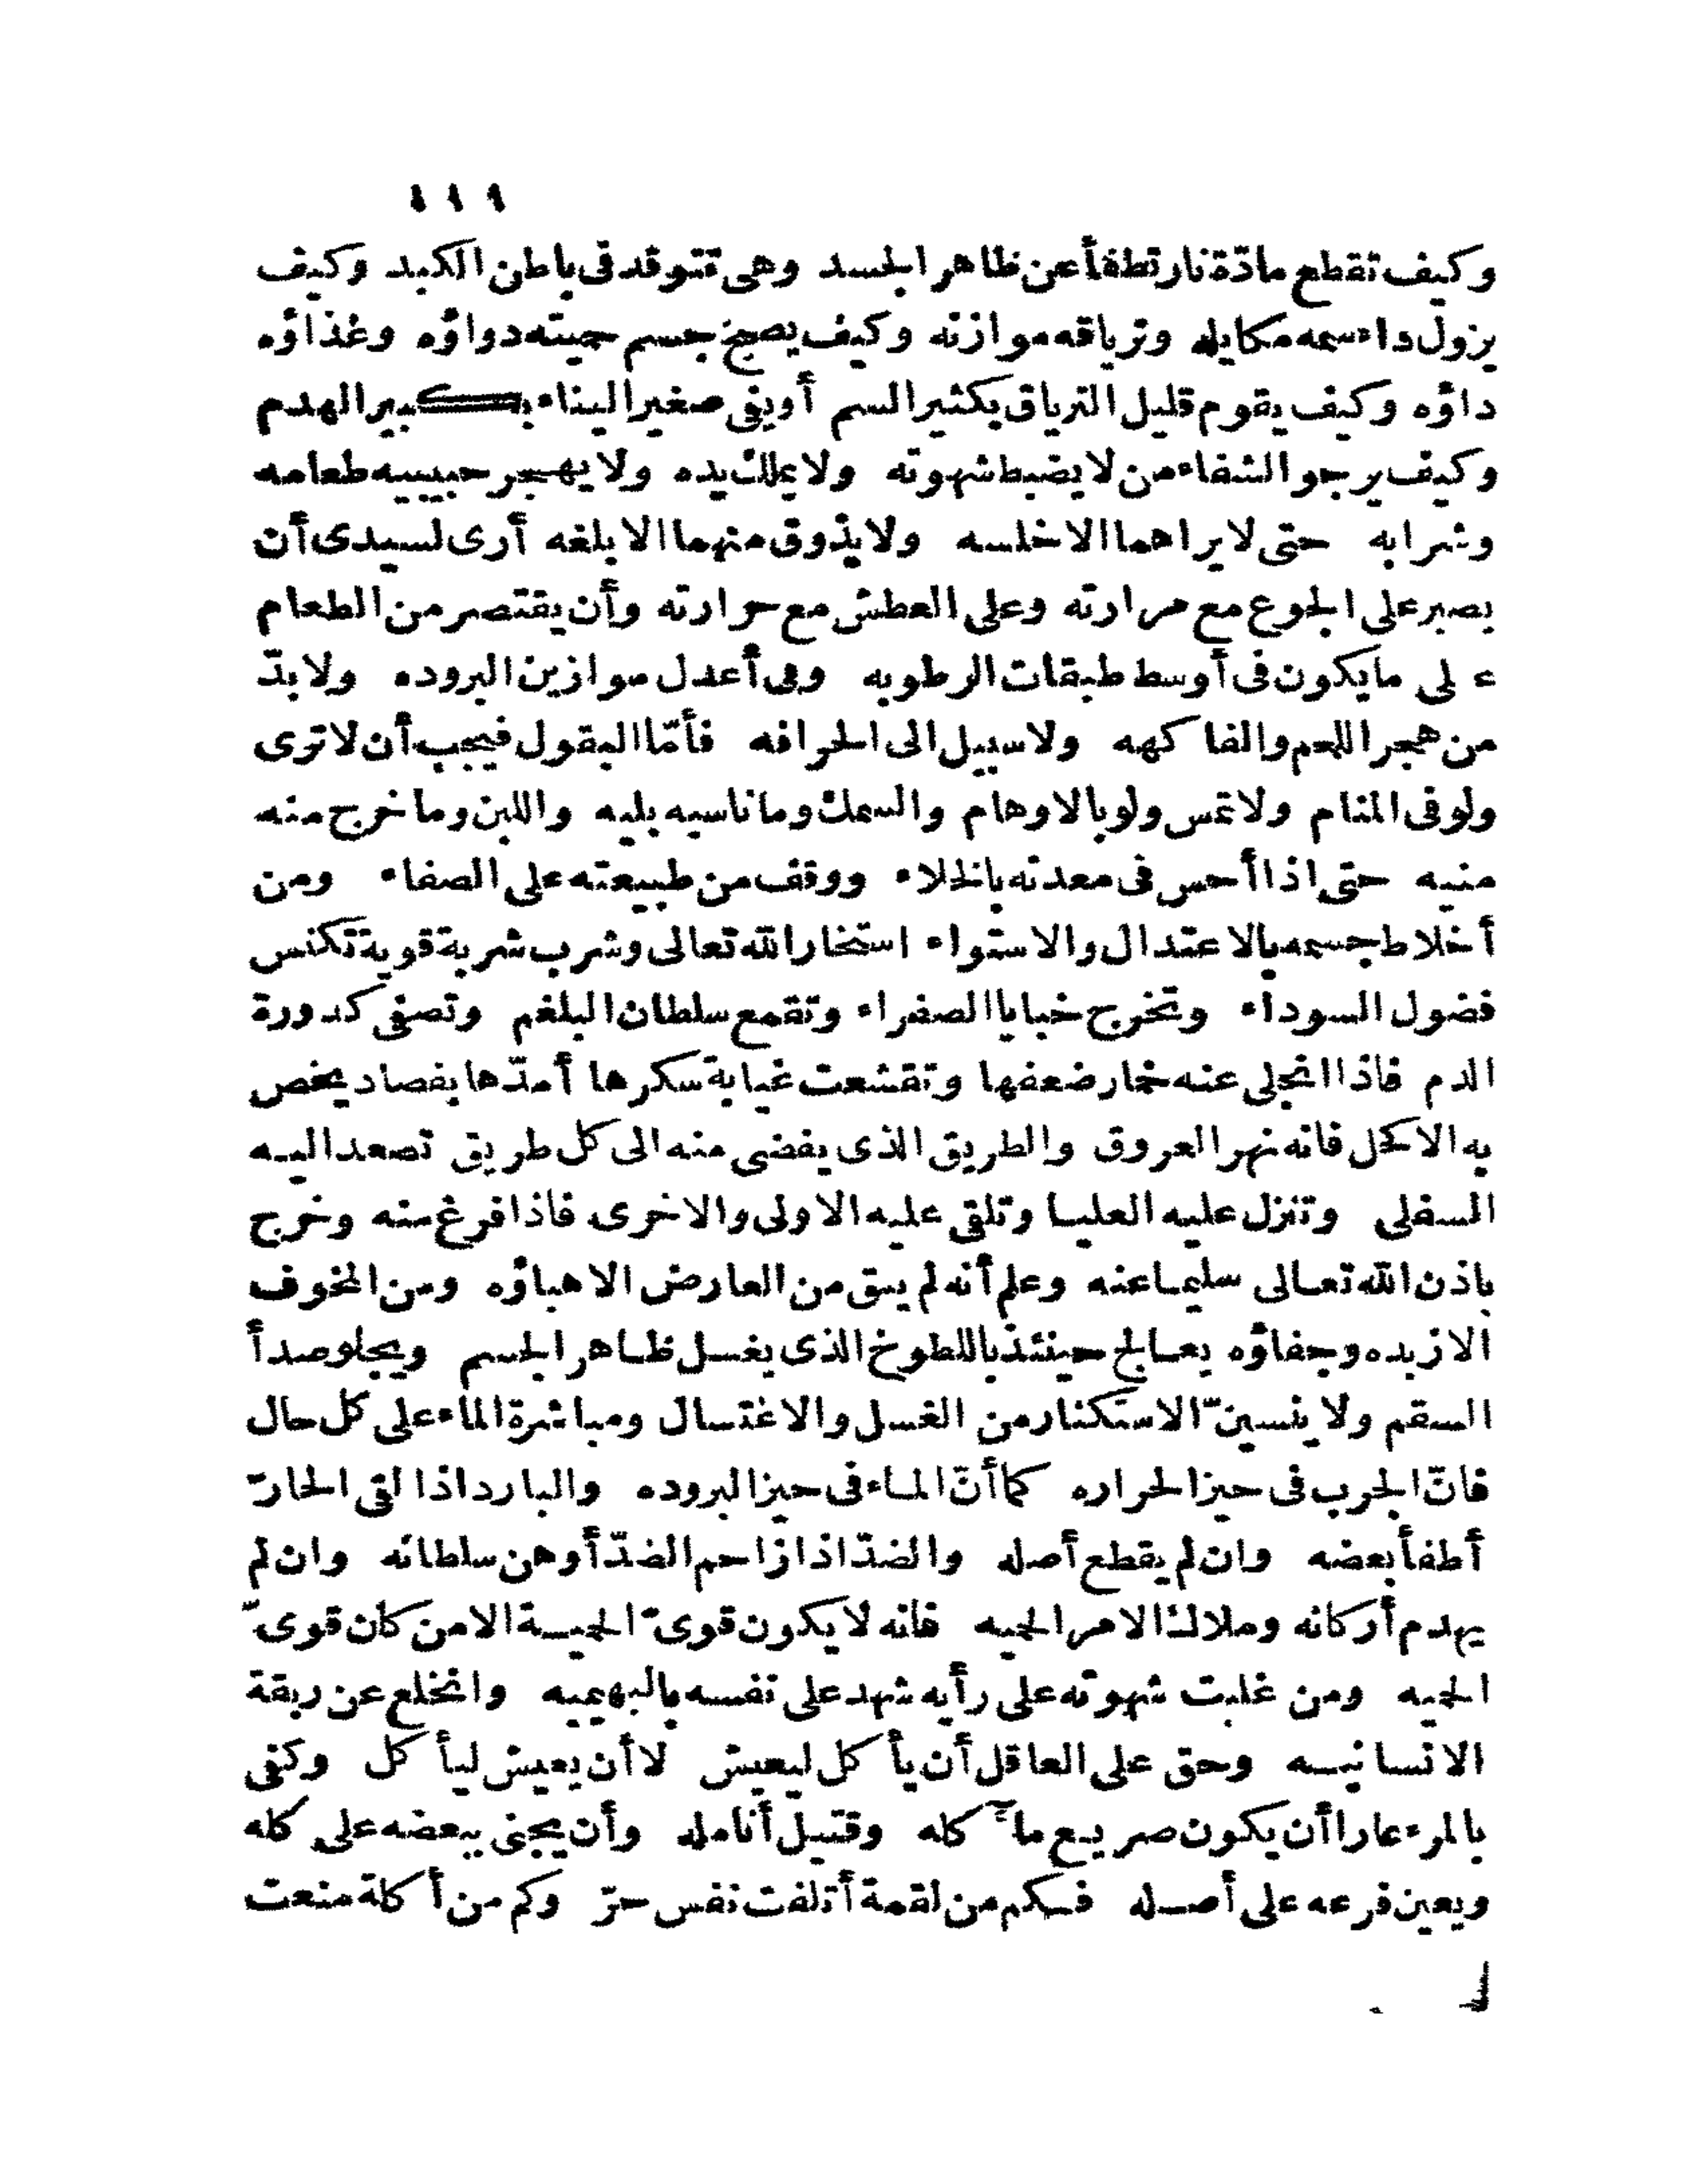 ١١١
وكيف تقطع مادّة نار تطفأ عن ظاهر الجسد وهى تتوقد فى باطن الكبد وكيف
يزول داء سمه مكايله وترياقه موازنه وكيف يصح جسم حميته دواؤه وغذاؤه
داؤه وكيف يقوم قليل الترياق بكثير السم أويفى صغير البناء بكبير الهدم
وكيف يرجو الشفاء من لا يضبط شهوته ولا يملك يده ولا يهجر حبيبيه طعامه
وشرابه حتى لا يراهما الا خلسه ولا يذوق منهما الا بلغه أرى لسيدى أن
يصبر على الجوع مع مرارته وعلى العطش مع حرارته وأن يقتصر من الطعام
على ما يكون فى أوسط طبقات الرطوبه وفى أعدل موازين البروده ولا بدّ
من هجر اللحم والفاكهه ولا سبيل الى الحرافه فأمّا البقول فيجب أن لا ترى
ولو فى المنام ولا تمس ولو بالاوهام والسمك وما ناسبه بليه واللبن وما خرج منه
منيه حتى اذا أحس فى معدته بالخلاء ووقف من طبيعته على الصفاء ومن
أخلاط جسمه بالاعتدال والاستواء استخار الله تعالى وشرب شربة قوية تكنس
فضول السوداء وتخرج خبايا الصفراء وتقمع سلطان البلغم وتصفى كدورة
الدم فاذا انجلى عنه خمار ضعفها وتقشعت غيابة سكرها أمدّها بفصاد يخص
به الاكحل فانه نهر العروق والطريق الذى يفضى منه الى كل طريق تصعد اليه
السفلى وتنزل عليه العليا وتلقى عليه الاولى والاخرى فاذا فرغ منه وخرج
باذن الله تعالى سليما عنه وعلم أنه لم يبق من العارض الا هباؤه ومن المخوف
الا زبده وجفاؤه يعالج حينئذ باللطوخ الذى يغسل ظاهر الجسم ويجلو صدأ
السقم ولا ينسينّ الاستكثار من الغسل والاغتسال ومباشرة الماء على كل حال
فانّ الجرب فى حيز الحراره كما أنّ الماء فى حيز البروده والبارد اذا لقى الحارّ
أطفأ بعضه وان لم يقطع أصله والضدّ اذا زاحم الضدّ أوهن سلطانه وان لم
يهدم أركانه وملاك الامر الحميه فانه لا يكون قوىّ الحمية الا من كان قوىّ
الحميه ومن غلبت شهوته على رأيه شهد على نفسه بالبهيميه وانخلع عن ربقة
الانسانيه وحق على العاقل أن يأكل ليعيش لا أن يعيش ليأكل وكفى
بالمرء عارا أن يكون صريع مآكله وقتيل أنامله وأن يجنى ببعضه على كله
ويعين فرعه على أصله فكم من لقمة أتلفت نفس حرّ وكم من أكلة منعت